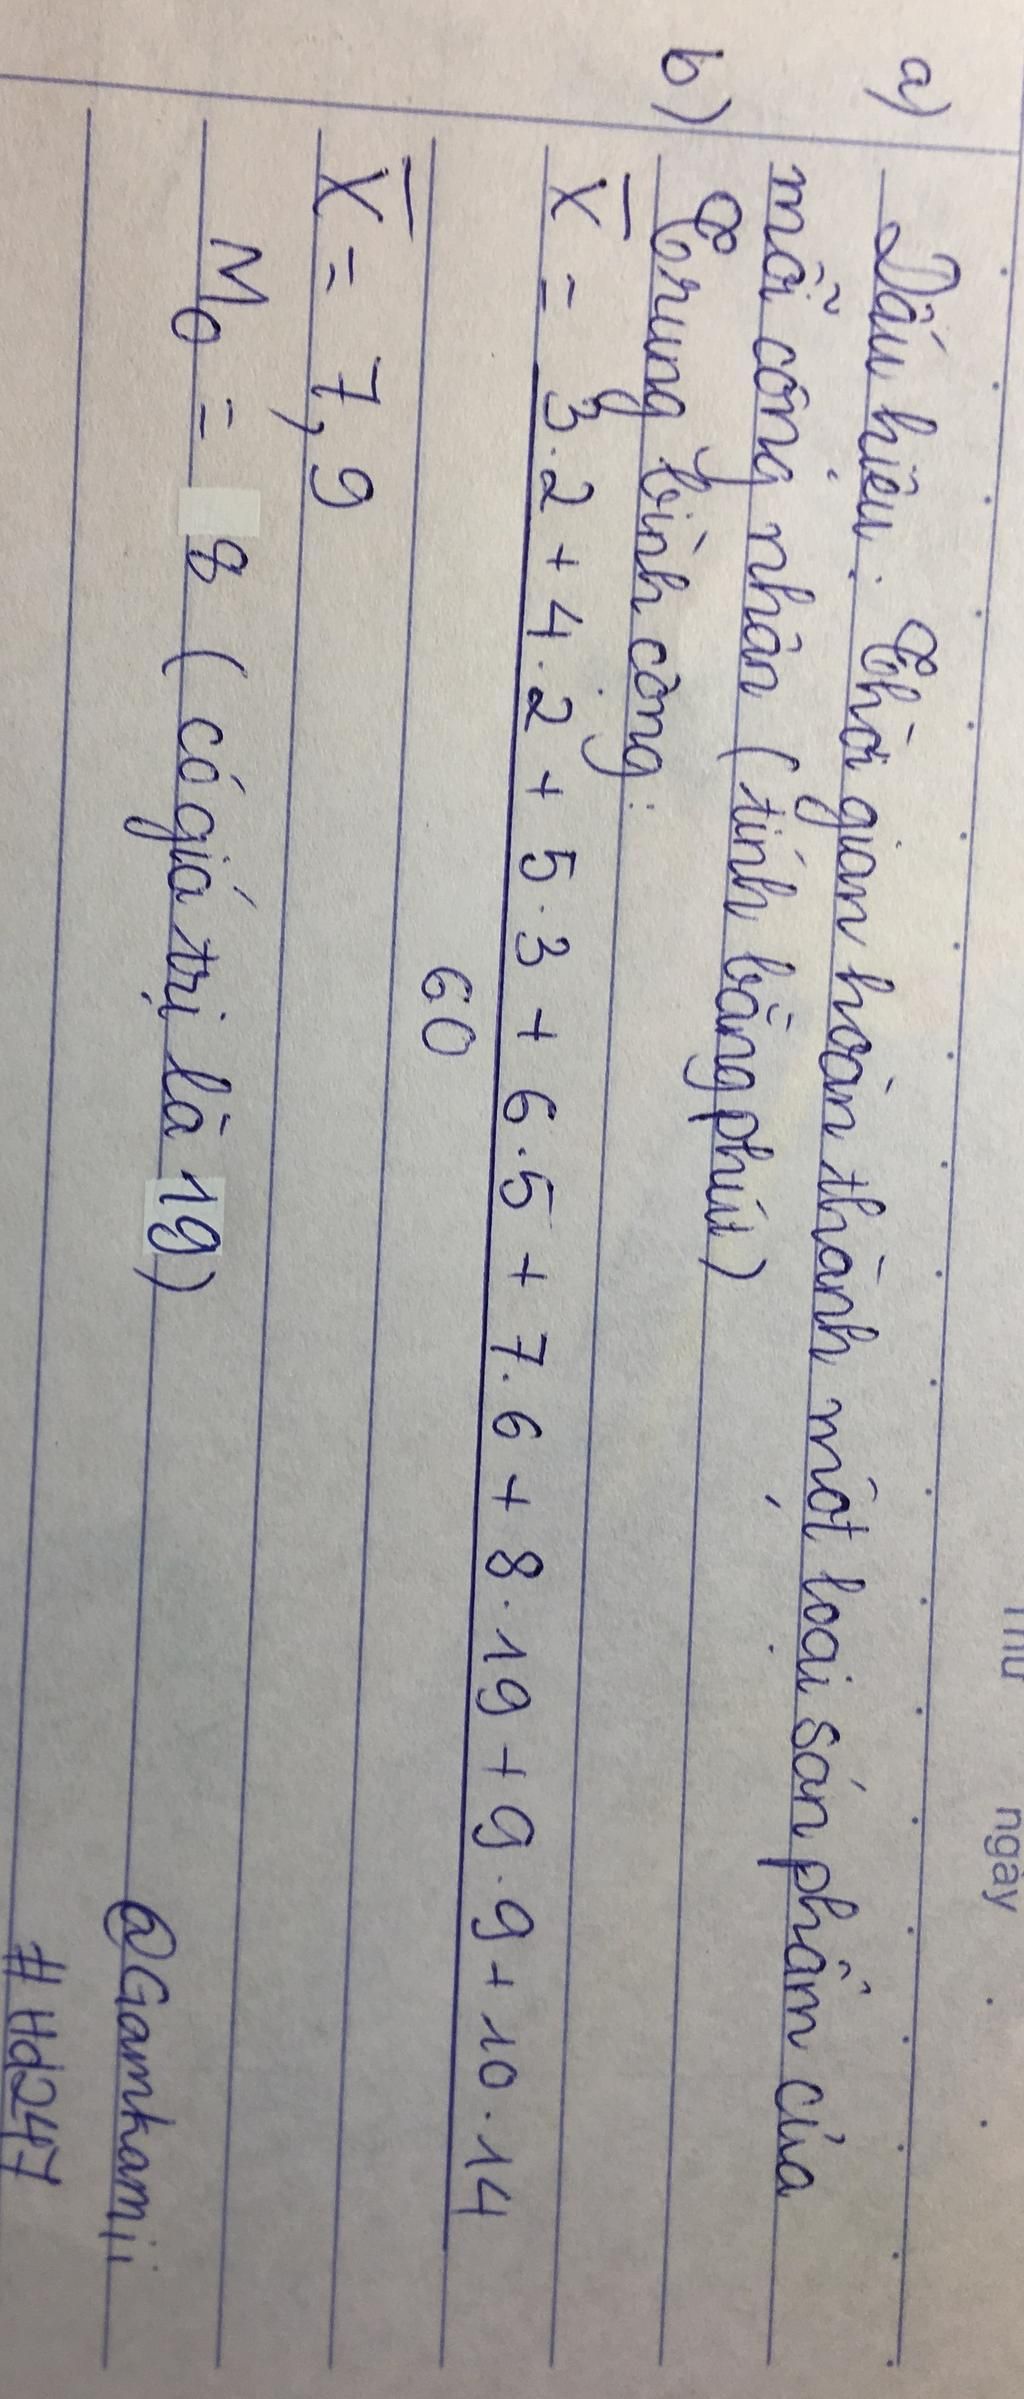 Thứ ngày
a) Dấu hiệu: Thời gian hoàn thành một loại sản phẩm của
mỗi công nhân (tính bằng phút)
b) Trung bình cộng:
X̄ = 3.2 + 4.2 + 5.3 + 6.5 + 7.6 + 8.19 + 9.9 + 10.14
60
X̄ = 7,9
M₀ = 8 (có giá trị là 19)
@Gamkamii
#Hd247